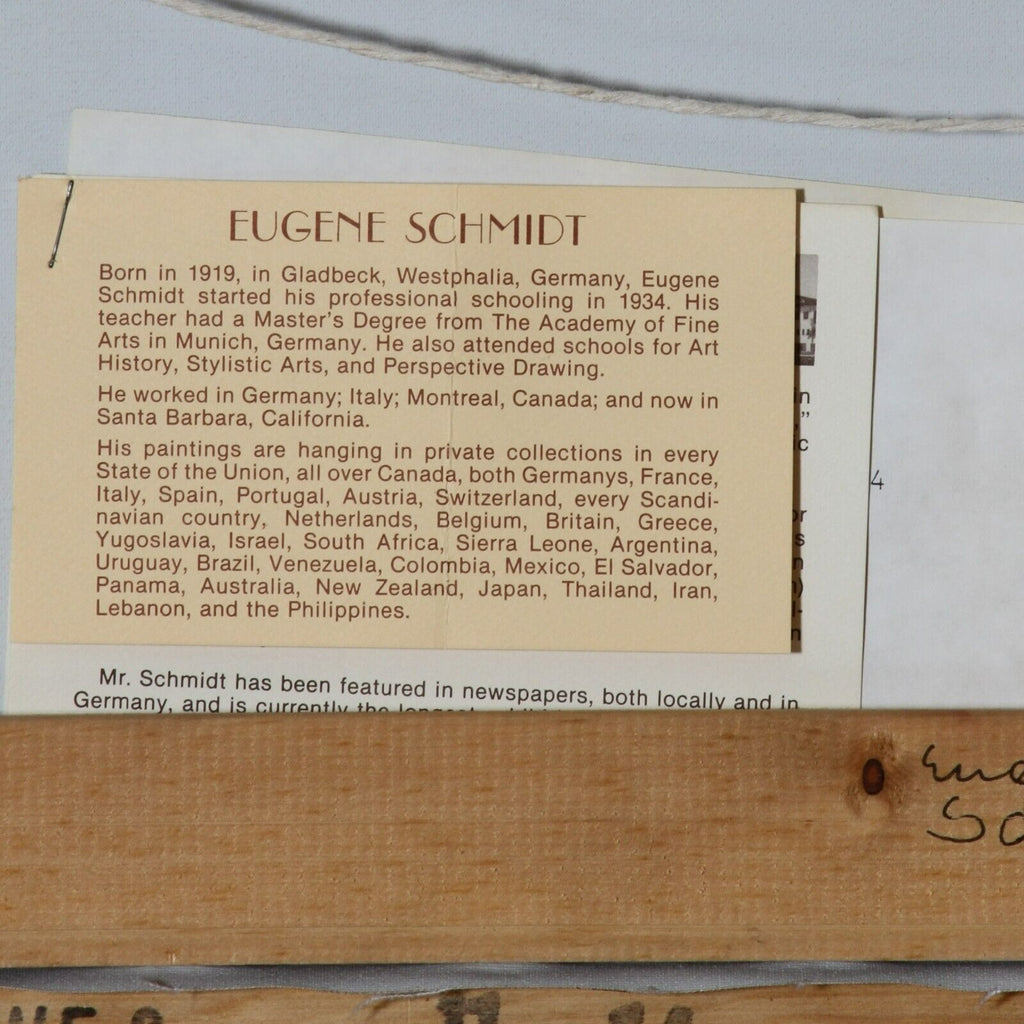 EUGENE SCHMIDT
Born in 1919, in Gladbeck, Westphalia, Germany, Eugene
Schmidt started his professional schooling in 1934. His
teacher had a Master's Degree from The Academy of Fine
Arts in Munich, Germany. He also attended schools for Art
History, Stylistic Arts, and Perspective Drawing.
He worked in Germany; Italy; Montreal, Canada; and now in
Santa Barbara, California.
His paintings are hanging in private collections in every
State of the Union, all over Canada, both Germanys, France,
Italy, Spain, Portugal, Austria, Switzerland, every Scandi-
navian country, Netherlands, Belgium, Britain, Greece,
Yugoslavia, Israel, South Africa, Sierra Leone, Argentina,
Uruguay, Brazil, Venezuela, Colombia, Mexico, El Salvador,
Panama, Australia, New Zealand, Japan, Thailand, Iran,
Lebanon, and the Philippines.
4
Mr. Schmidt has been featured in newspapers, both locally and in
Germany, and is currently the